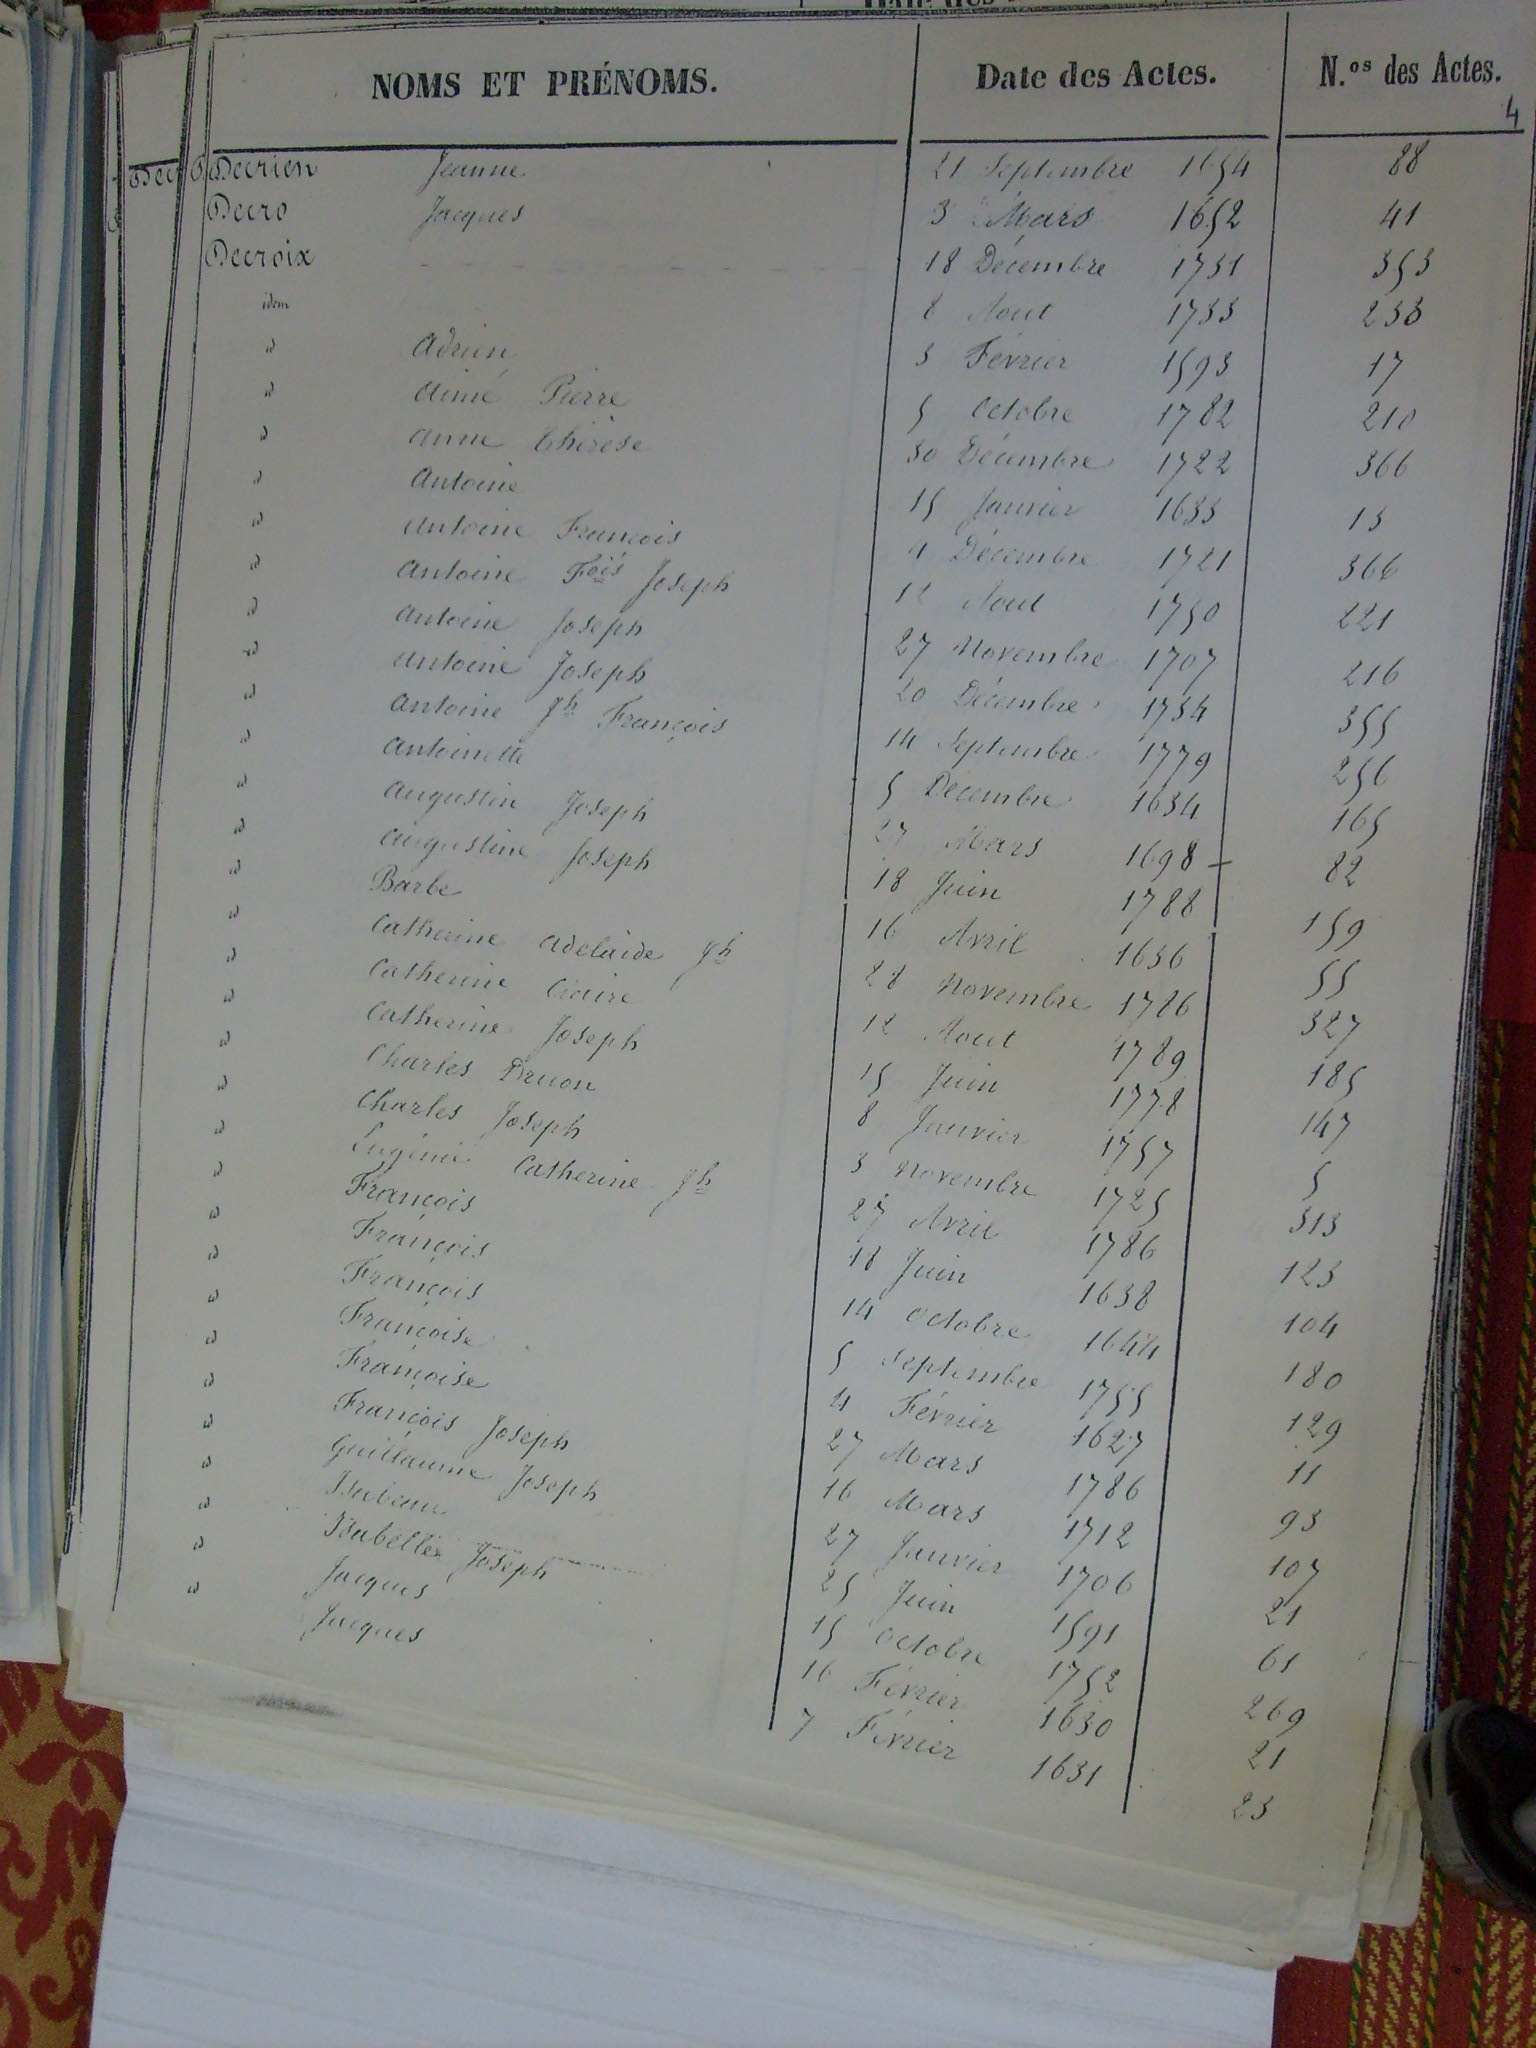 NOMS ET PRÉNOMS. Date des Actes. N.os des Actes.
4
Decrien Jeanne 21 Septembre 1654 88
Decro Jacques 3 Mars 1652 41
Decroix 18 Décembre 1731 353
idem 8 Aout 1733 233
" Adrien 3 Février 1593 17
" Aimé Pierre 5 Octobre 1782 210
" Anne Thérèse 30 Décembre 1722 366
" Antoine 15 Janvier 1633 13
" Antoine François 4 Décembre 1721 366
" Antoine Fois Joseph 12 Aout 1750 221
" Antoine Joseph 27 Novembre 1707 216
" Antoine Joseph 20 Décembre 1734 355
" Antoine Jh François 14 Septembre 1779 256
" Antoinette 5 Décembre 1634 165
" Augustin Joseph 27 Mars 1698 82
" Augustine Joseph 18 Juin 1788 159
" Barbe 16 Avril 1636 55
" Catherine Adelaide Jh 28 Novembre 1786 327
" Catherine Claire 12 Aout 1789 185
" Catherine Joseph 15 Juin 1778 147
" Charles Druon 8 Janvier 1757 5
" Charles Joseph 3 Novembre 1725 313
" Eugénie Catherine Jh 27 Avril 1786 123
" François 18 Juin 1638 104
" François 14 Octobre 1644 180
" François 5 Septembre 1755 129
" Françoise 4 Février 1627 11
" Françoise 27 Mars 1786 93
" François Joseph 16 Mars 1712 107
" Guillaume Joseph 27 Janvier 1706 21
" Isabeau 25 Juin 1591 61
" Isabelle Joseph 15 Octobre 1752 269
" Jacques 16 Février 1630 21
" Jacques 7 Février 1631 23